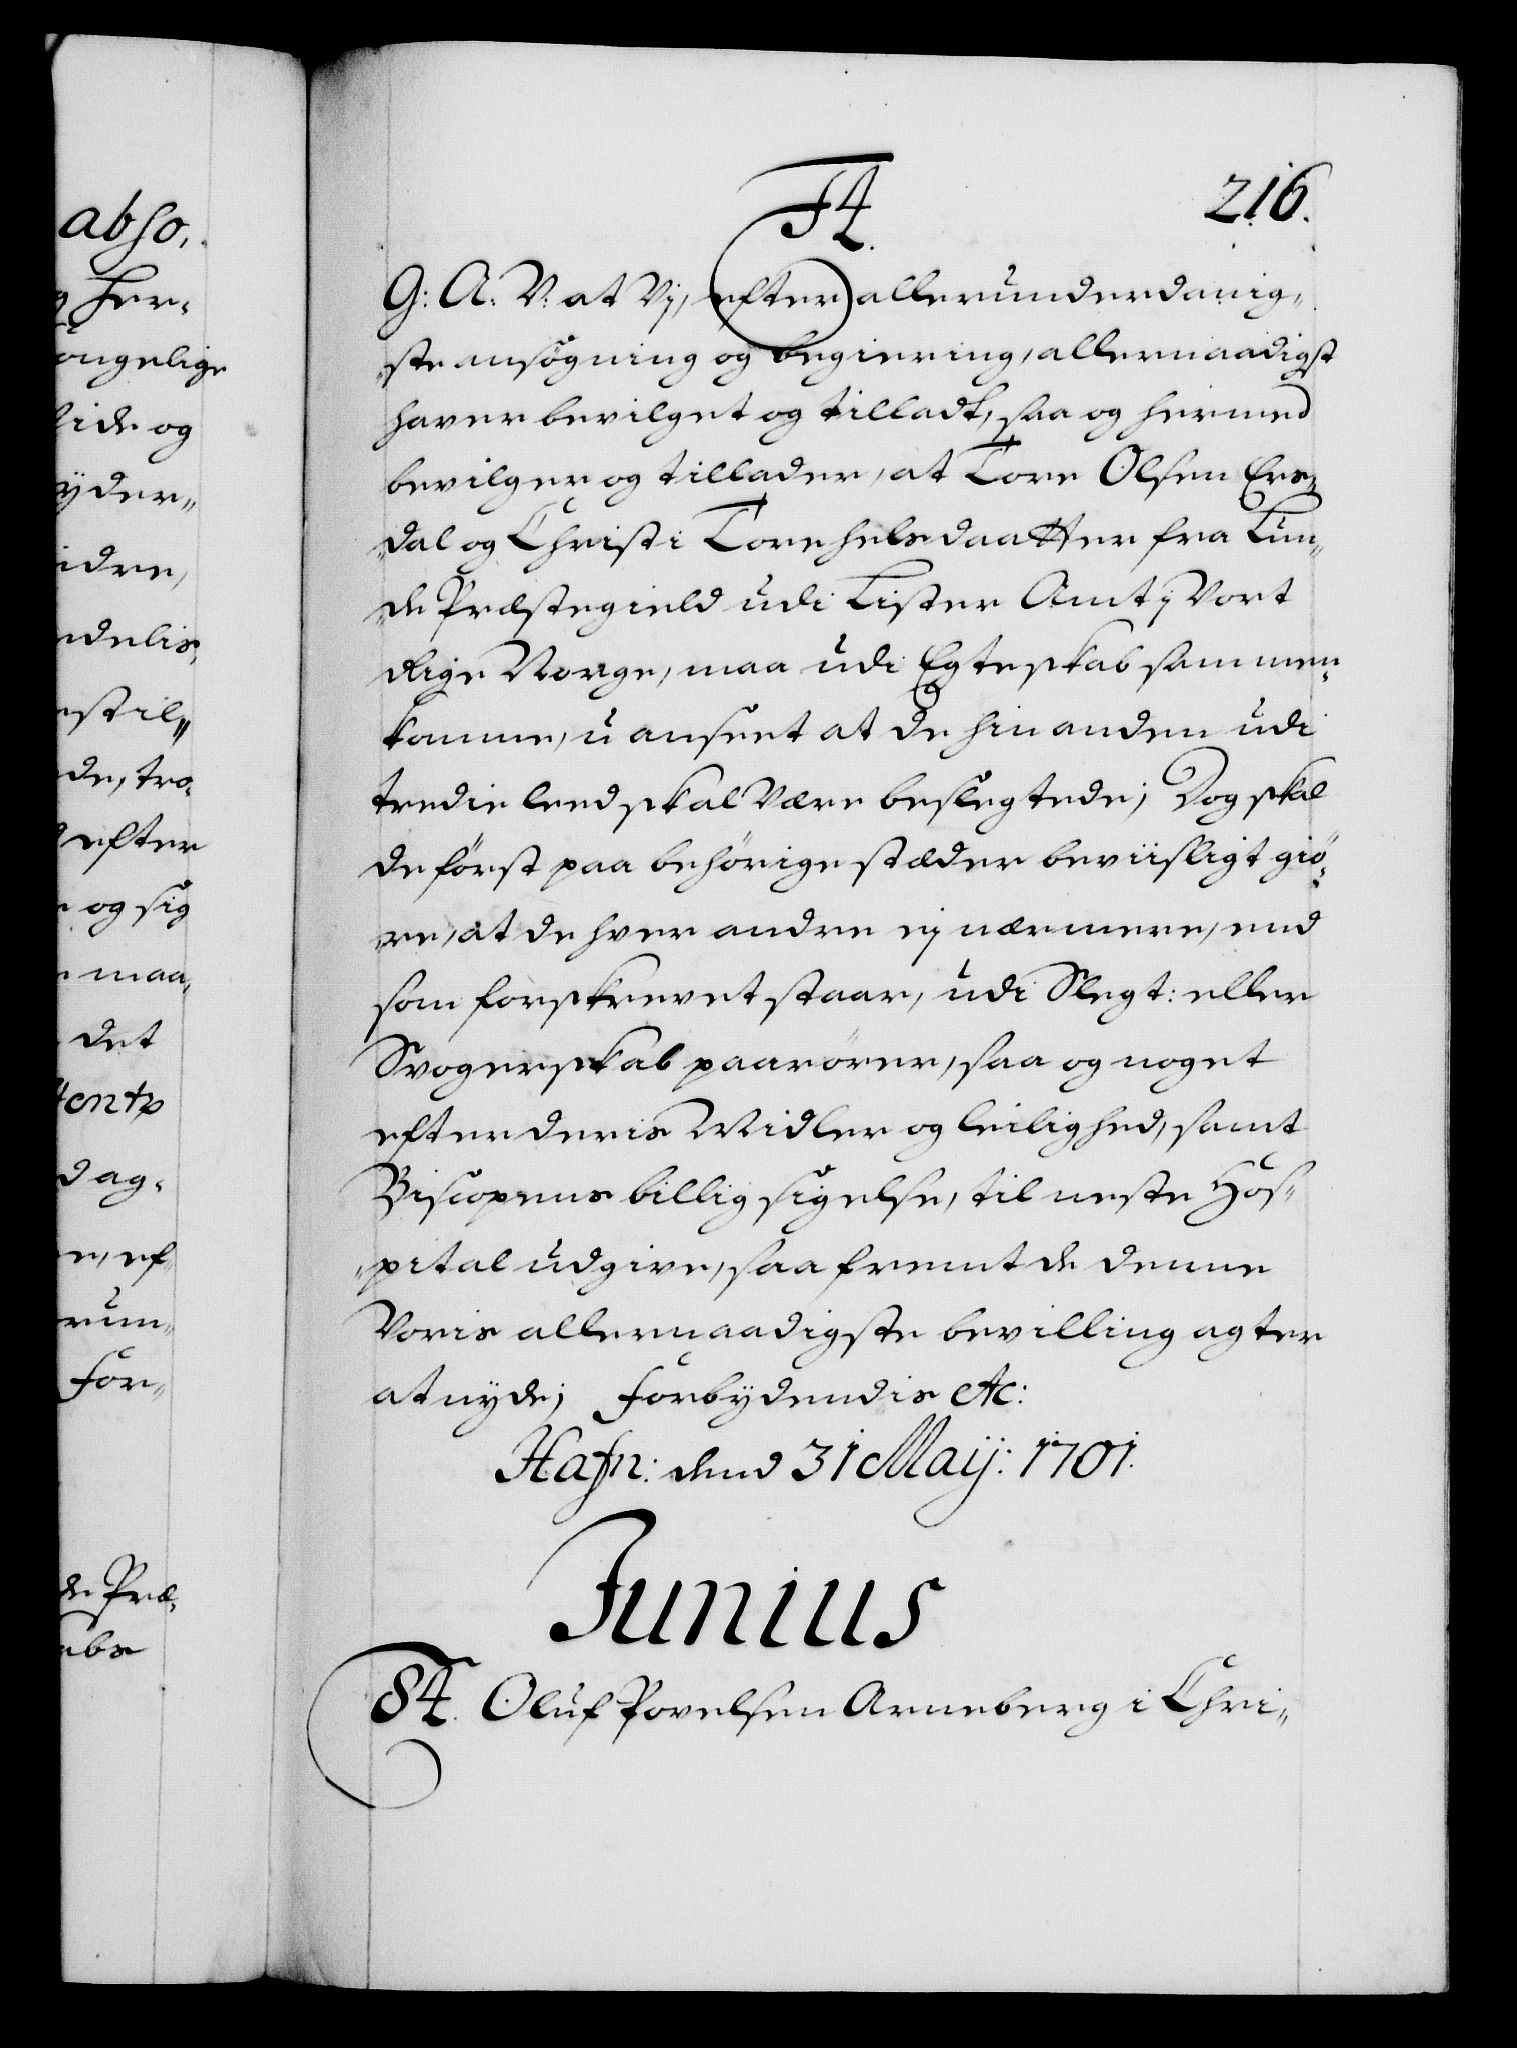 abso,
g her-
ongelige
lide og
ÿder„
idre,
edelis,
estil„
de, tro-
d efter
e og sig
e maa,
det
tentp
d ag-
e, ef-
run„
For„
de Præ-
ebs
F4. 216.
G: A: V: at Vj, efter allerunderdanig„
„ste ansögning og begiering, allernaadigst
haver bevilget og tilladt, saa og hermed
bevilger og tillader, at Tore Olsen Ers„
„dal og Christi Torchelsdaatter fra Lun„
„de Præstegield udi Lister Amt j Vort
Rige Norge, maa udi Egteskab sammen„
komme, uanseet at de hinanden udi
tredie leed skal Være beslegtede; Dog skal
de först paa behörige stæder beviisligt giö„
„re, at de hver andre ej nærmere, end
som forskrevet staar, udi Slegt: eller
Svogerskab paarörer, saa og noget
efter deris Midler og leilighed, samt
Biscopens billig sigelse, til neste Hos„
„pital udgive, saafremt de denne
Voris allernaadigste bevilling agter
at nyde; Forbydendis etc:
Hafn: dend 31 Maij: 1701.
Junius
84. Oluf Povelsen Arneberg i Chri„